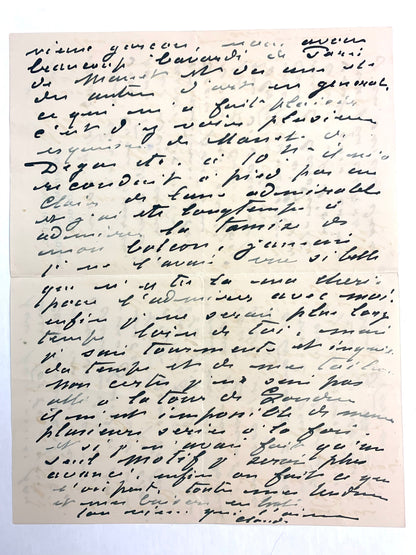 vieux garçon, nous avons
beaucoup bavardé de Paris
de Manet et des uns et
des autres d'art en général,
ce qui m'a fait plaisir
c'est d'y voir plusieurs
esquisses de Manet de
Degas etc. à 10 h il m'a
reconduit à pied par un
clair de lune admirable
et j'ai été longtemps à
admirer la tamise de
mon balcon, jamais
je ne l'avais vue si belle
que n'es tu là ma chérie
pour l'admirer avec moi.
enfin je ne serai plus long
temps loin de toi, mais
je suis tourmenté et inquiet
du temps et de mes toiles.
non certes je ne suis pas
allé à la tour de Londres
il m'est impossible de mener
plusieurs séries à la fois
et si je n'avais fait qu'un
seul motif j'aurais plus
avancé, enfin on fait ce que
l'on peut. toute ma tendresse
et mes baisers
ton vieux qui t'aime
Claude